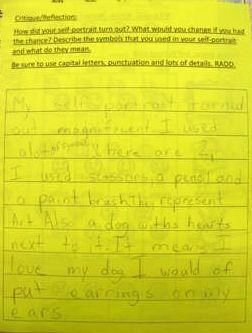 Critique/Reflection:
How did your self-portrait turn out? What would you change if you had
the chance? Describe the symbols that you used in your self-portrait
and what do they mean.
Be sure to use capital letters, punctuation and lots of details. RADD.
My self-portrait turned
out magnificent I used
alot of good Here are
I used scissors, a pensl and
a paint brush represent
Art Also a dog withs hearts
next to it. It means I
love my dog I would of
put earrings on my
ears.